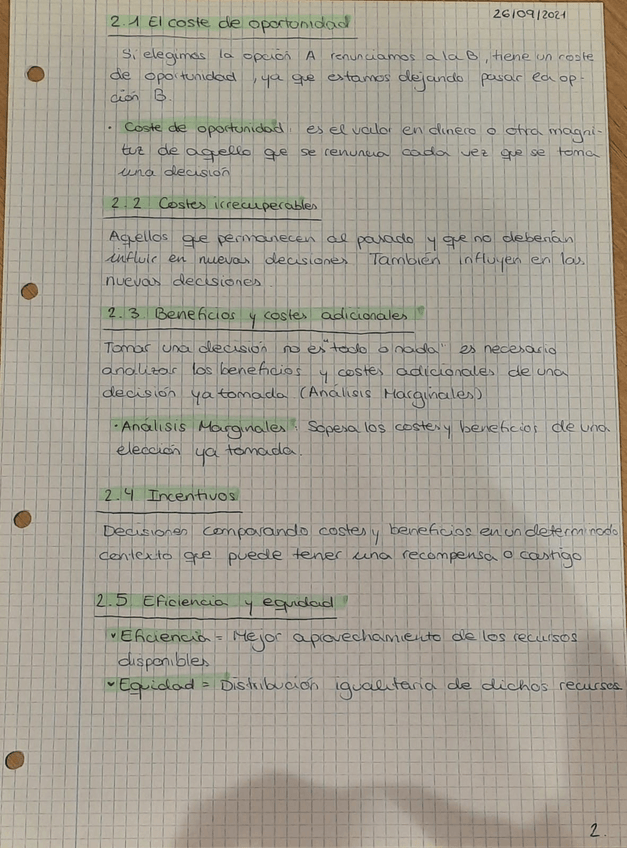 26/09/2021
2.1 El coste de oportunidad
Si elegimos la opción A renunciamos a la B, tiene un coste
de oportunidad, ya que estamos dejando pasar la op-
ción B.
· Coste de oportunidad: es el valor en dinero o otra magni-
tuz de aquello que se renuncia cada vez que se toma
una decisión
2.2 Costes irrecuperables
Aquellos que permanecen al pasado y que no deberían
influir en nuevas decisiones. También influyen en las
nuevas decisiones.
2.3 Beneficios y costes adicionales
Tomar una decisión no es "todo o nada" es necesario
analizar los beneficios y costes adicionales de una
decisión ya tomada (Análisis Marginales)
· Análisis Marginales: Sopesa los costes y beneficios de una
elección ya tomada.
2.4 Incentivos
Decisiones comparando costes y beneficios en un determinado
contexto que puede tener una recompensa o castigo
2.5 Eficiencia y equidad
Eficiencia = Mejor aprovechamiento de los recursos
disponibles
Equidad = Distribución igualitaria de dichos recursos
2.